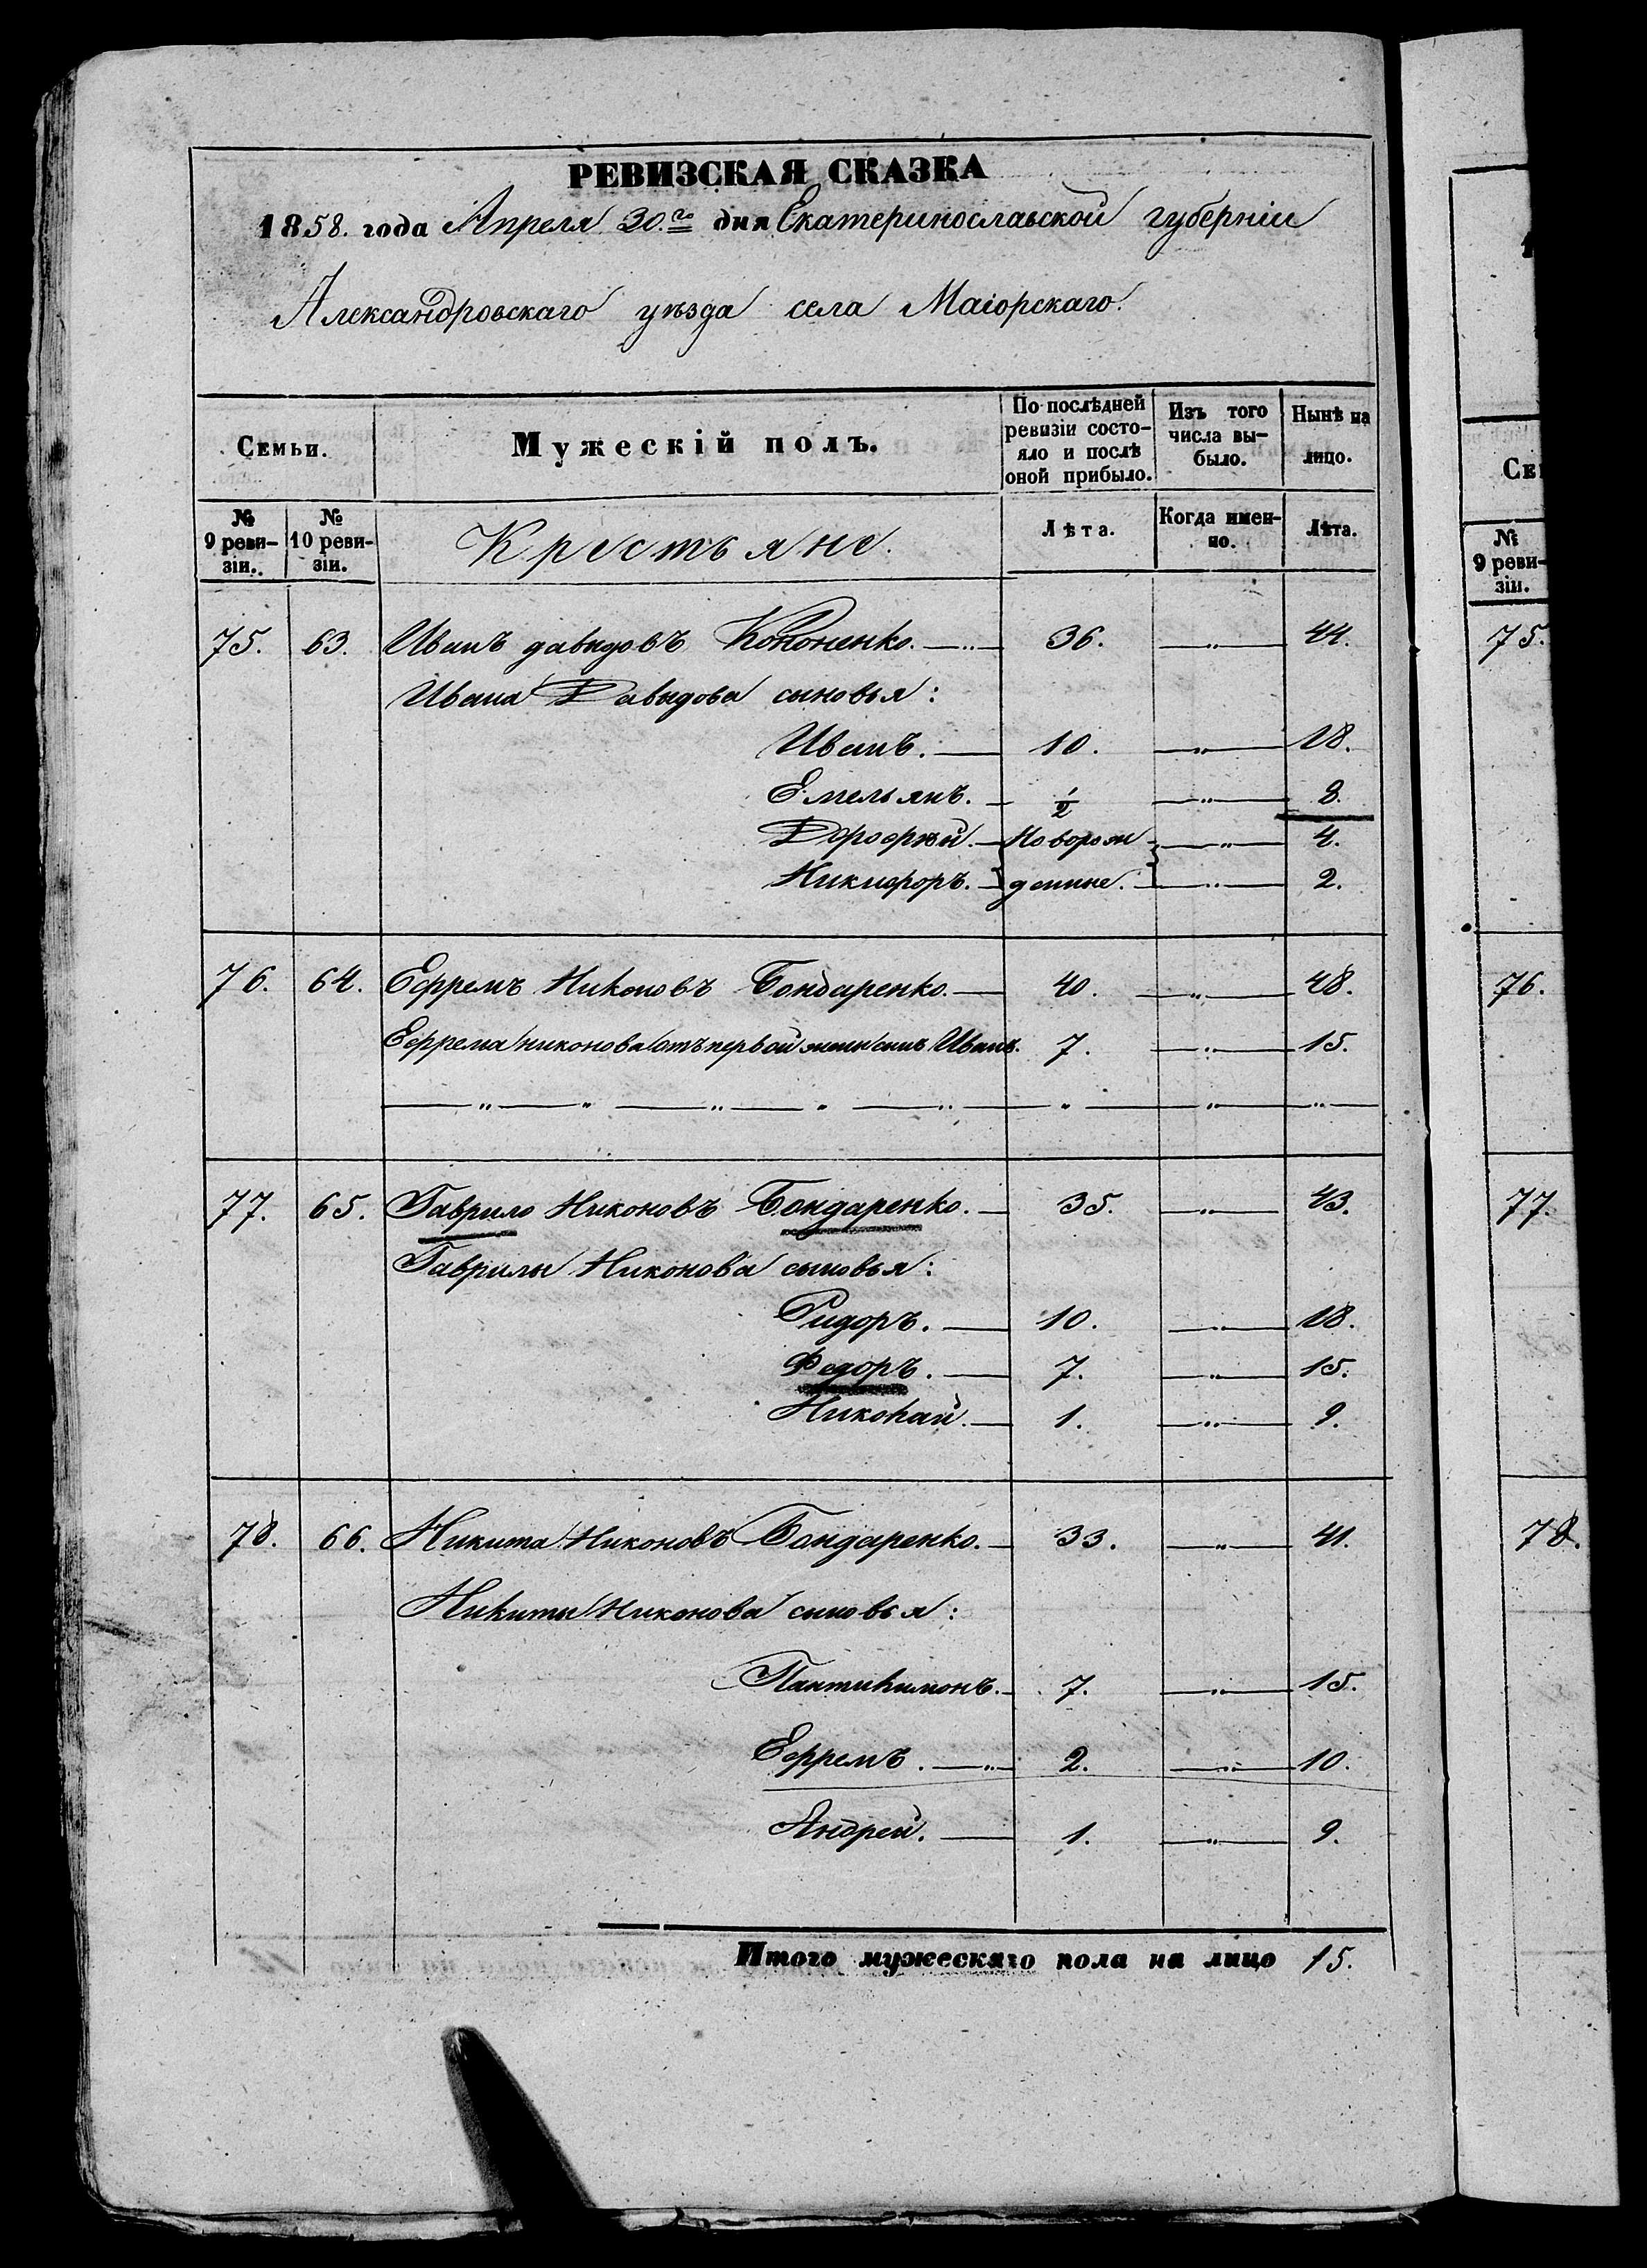 РЕВИЗСКАЯ СКАЗКА
1858. года Апреля 30.го дня Екатеринославской губерніи
Александровскаго уѣзда села Маіорскаго.
Семьи. Мужескій полъ. По последней ревизіи состояло и послѣ оной прибыло. Изъ того числа выбыло. Нынѣ на лицо.
№ 9 ревизіи. № 10 ревизіи. Крестьяне. Лѣта. Когда именно. Лѣта.
75. 63. Иванъ давыдовъ Кононенко. 36. 44.
Ивана Давыдова сыновья:
Иванъ. 10. 18.
Емельянъ. 1/2 8.
Дорофѣй. Новорож 4.
Никифоръ. денные. 2.
76. 64. Ефремъ Никоновъ Бондаренко. 40. 48.
Ефрема никонова отъ первой жены сынъ Иванъ. 7. 15.
77. 65. Гаврило Никоновъ Бондаренко. 35. 43.
Гаврилы Никонова сыновья:
10. 18.
Федоръ. 7. 15.
Николай. 1. 9.
78. 66. Никита Никоновъ Бондаренко. 33. 41.
Никиты Никонова сыновья:
Пантилимонъ. 7. 15.
Ефремъ. 2. 10.
Андрей. 1. 9.
Итого мужескаго пола на лицо 15.
СЕ
№ 9 ревизіи.
75.
76.
77.
78.